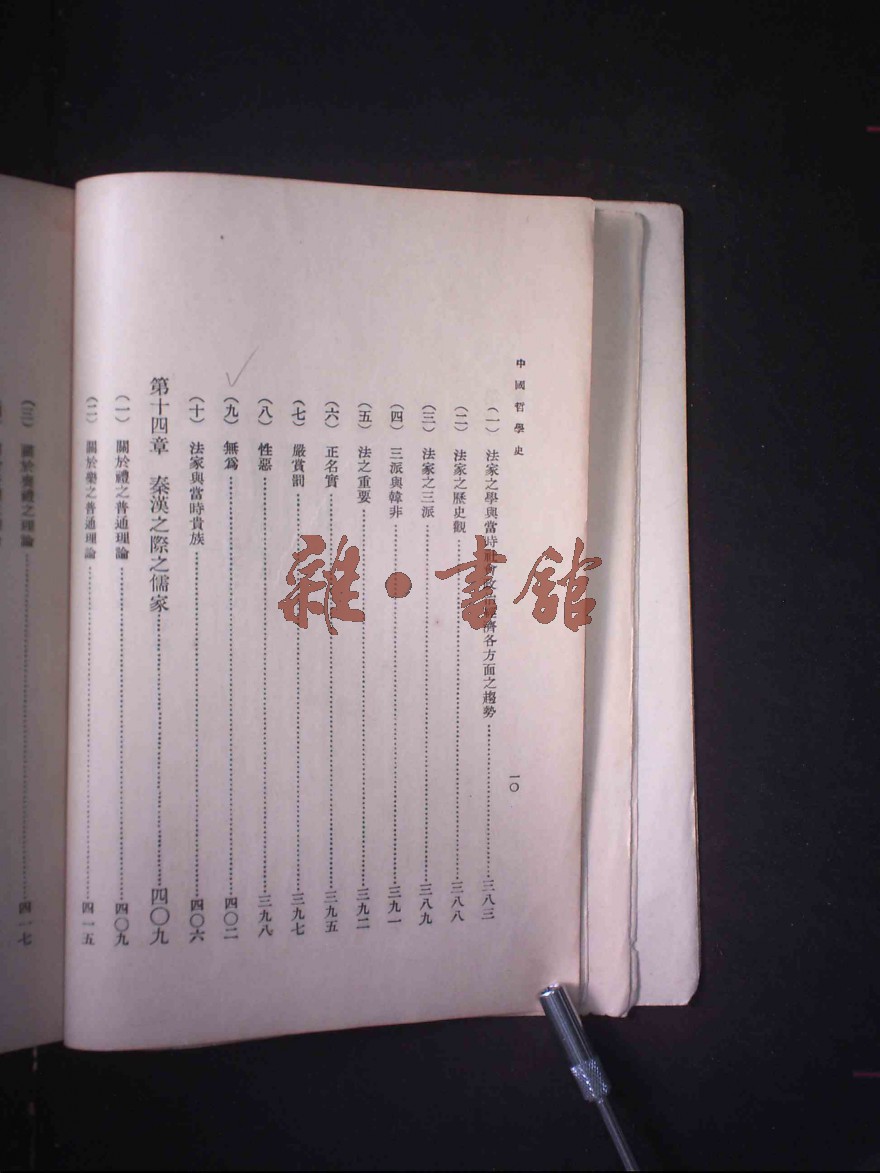 中國哲學史
一〇
(一) 法家之學與當時社會政治經濟各方面之趨勢 三八三
(二) 法家之歷史觀 三八八
(三) 法家之三派 三八九
(四) 三派與韓非 三九一
(五) 法之重要 三九二
(六) 正名實 三九五
(七) 嚴賞罰 三九七
(八) 性惡 三九八
(九) 無爲 四〇二
(十) 法家與當時貴族 四〇六
第十四章 秦漢之際之儒家 四〇九
(一) 關於禮之普通理論 四〇九
(二) 關於樂之普通理論 四一五
(三) 關於喪禮之理論 四一七
雜·書館